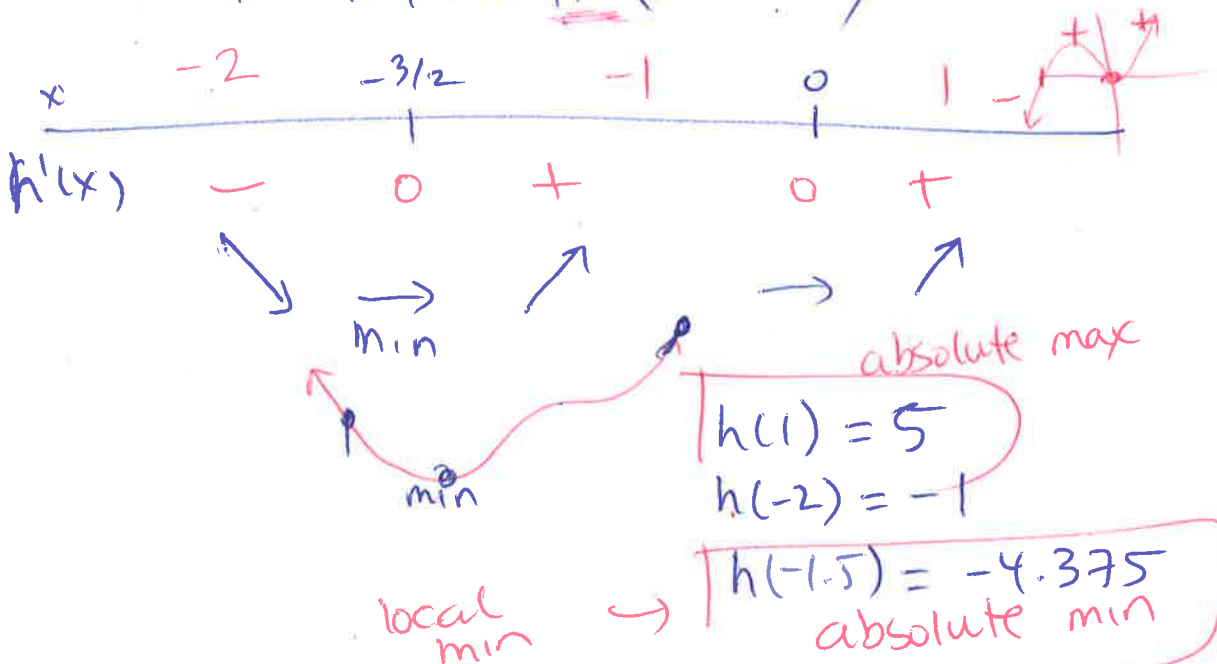 x -2 -3/2 -1 0 1
h'(x) - 0 + 0 +
- + +
min
absolute max
h(1) = 5
min
h(-2) = -1
h(-1.5) = -4.375
local min → absolute min